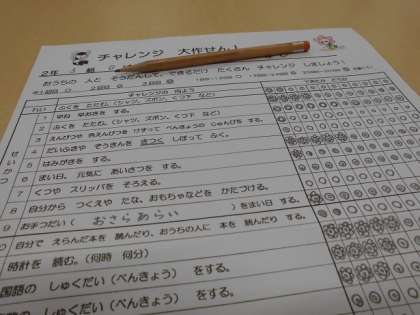 チャレンジ 大作せん!
2年 3組
おうちの 人と そうだんして、できるだけ たくさん チャレンジ しましょう!
チャレンジの 内よう
れい ふくを たたむ。(シャツ、ズボン、くつ下 など)
1 早ね 早おきを する。
2 ふくを たたむ。(シャツ、ズボン、くつ下 など)
3 えんぴつや 色えんぴつを けずって べんきょうの じゅんびを する。
4 だいふきや ぞうきんを しぼって ふく。
5 はみがきを する。
6 まい日、元気に あいさつを する。
7 くつや スリッパを そろえる。
8 自分から つくえや たな、おもちゃなどを かたづける。
9 お手つだい( おさらあらい )を まい日 する。
自分で えらんだ本を 読んだり、おうちの人に 本を 読んだり する。
時計を 読む。(何時 何分)
国語の しゅくだい(べんきょう) をする。
しゅくだい(べんきょう) をする。
せいかつ